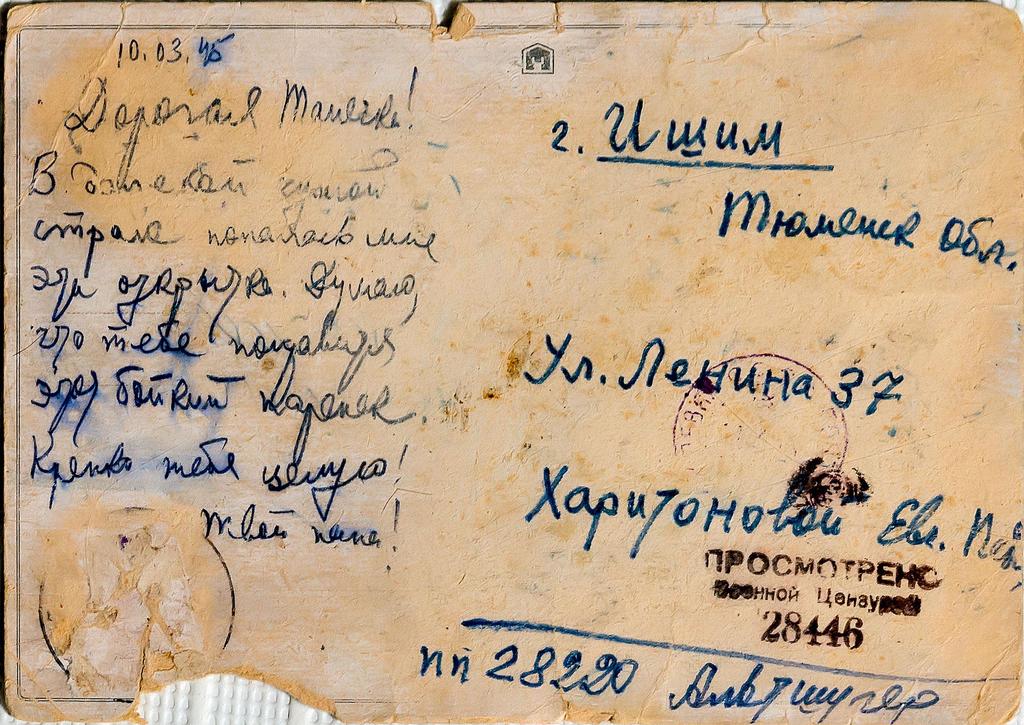 10.03.45
Дорогая Танечка!
В далекой чужой
стране попалась мне
эта открытка. Думаю,
что тебе понравится
этот бойкий паренек.
Крепко тебя целую!
Твой папа!
г. Ишим
Тюменск Обл.
Ул. Ленина 37
Харитоновой Евг.
ПРОСМОТРЕНО
Военной Цензурой
28446
пп 28220 Альтшулер